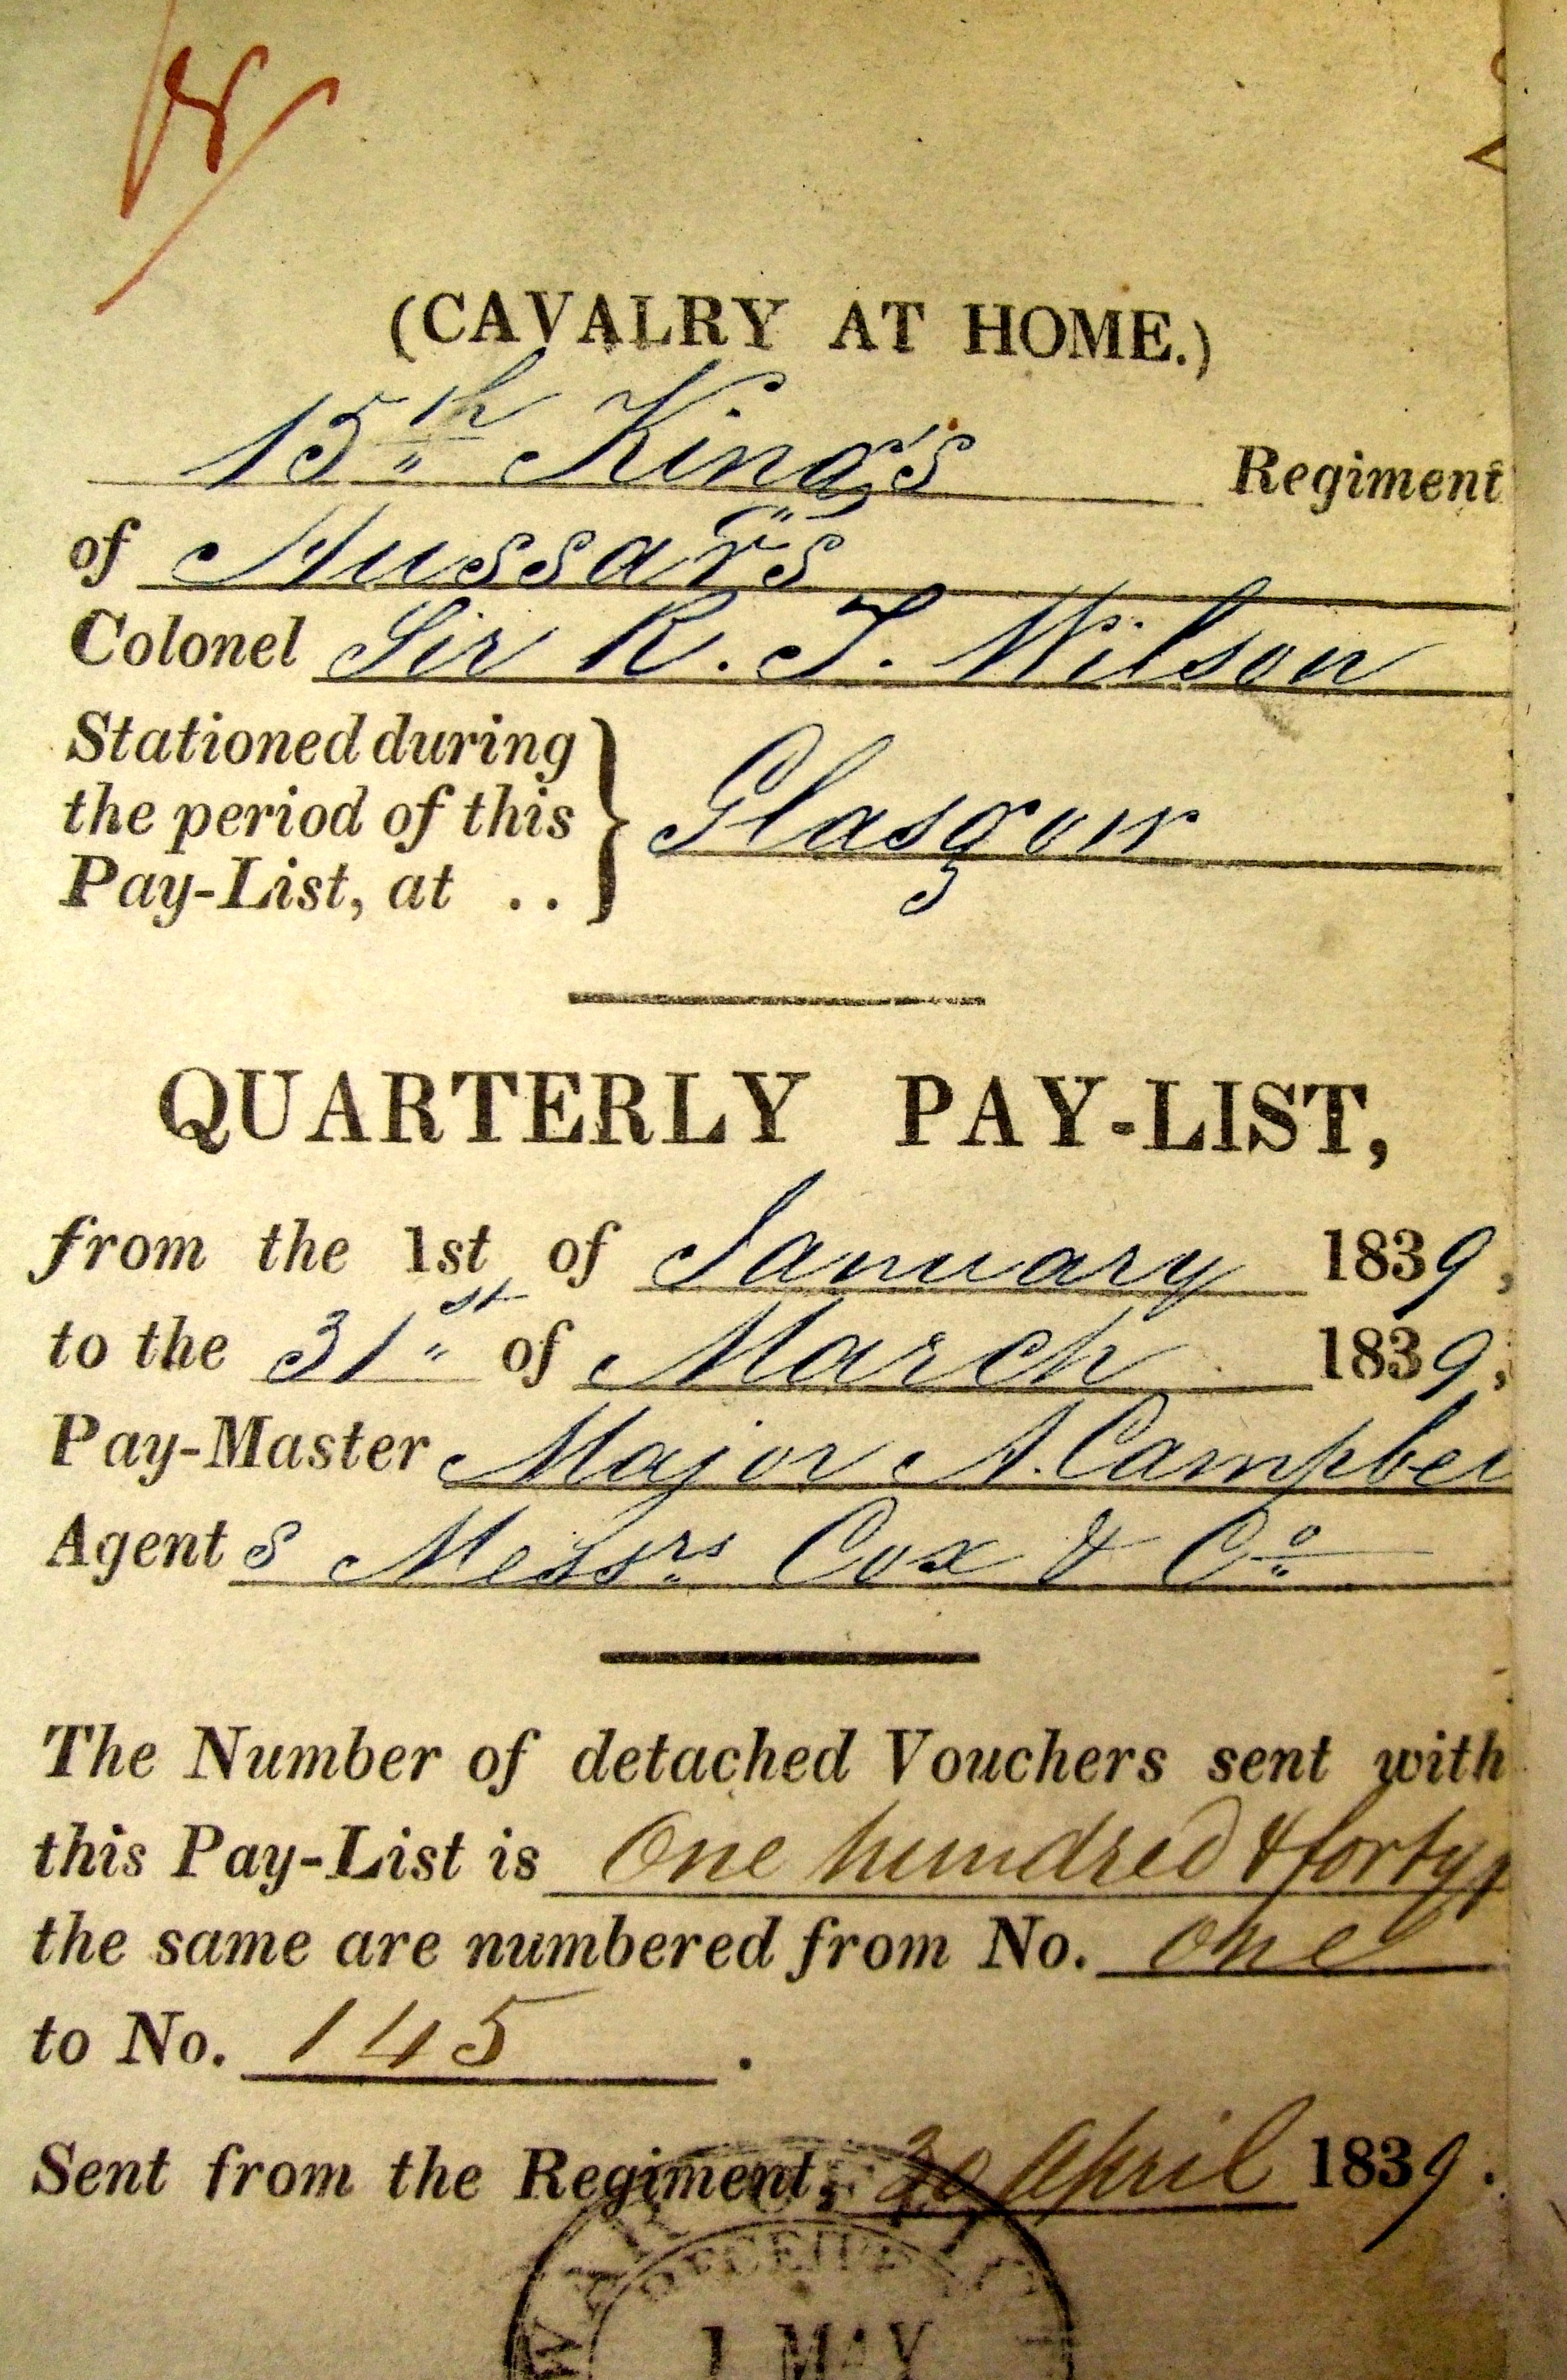 (CAVALRY AT HOME.)
15th King's Regiment
of Hussars
Colonel Sir R. T. Wilson
Stationed during
the period of this
Pay-List, at ..
Glasgow
QUARTERLY PAY-LIST,
from the 1st of January 1839,
to the 31st of March 1839,
Pay-Master Major A. Campbel
Agents Messrs Cox & Co
The Number of detached Vouchers sent with
this Pay-List is One hundred & forty,
the same are numbered from No. one
to No. 145.
Sent from the Regiment, April 1839.
WAR OFFICE
RECEIVED
1 MAY